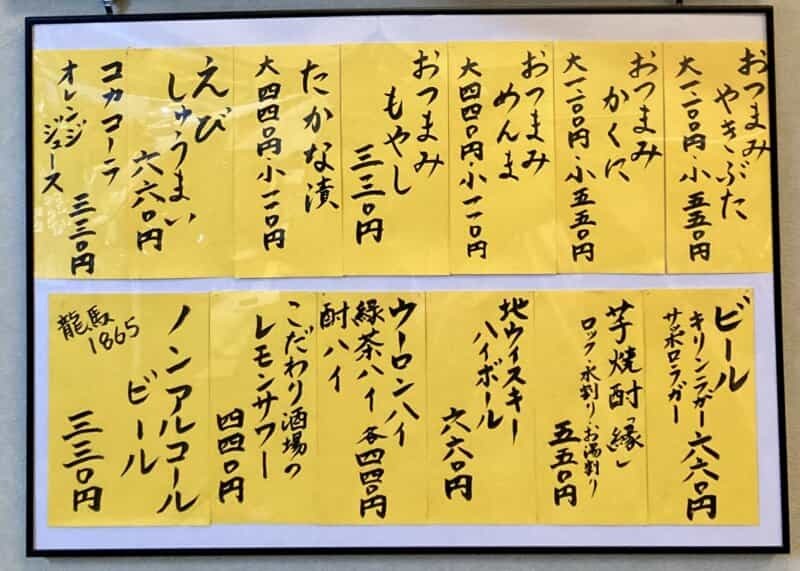 おつまみ
やきぶた
大一、一〇〇円・小 五五〇円
おつまみ
かくに
大一、一〇〇円・小 五五〇円
おつまみ
めんま
大 四四〇円・小 一一〇円
おつまみ
もやし
三三〇円
たかな漬
大 四四〇円・小 一一〇円
えび
しゅうまい
六六〇円
コカコーラ
オレンジ
ジュース 三三〇円
ビール
キリンラガー 六六〇円
サッポロラガー
芋焼酎「縁」
ロック・水割り・お湯割り
五五〇円
地ウィスキー
ハイボール
六六〇円
ウーロンハイ
緑茶ハイ 各四四〇円
酎ハイ
こだわり酒場の
レモンサワー
四四〇円
ノンアルコール
ビール
三三〇円
龍馬
1865